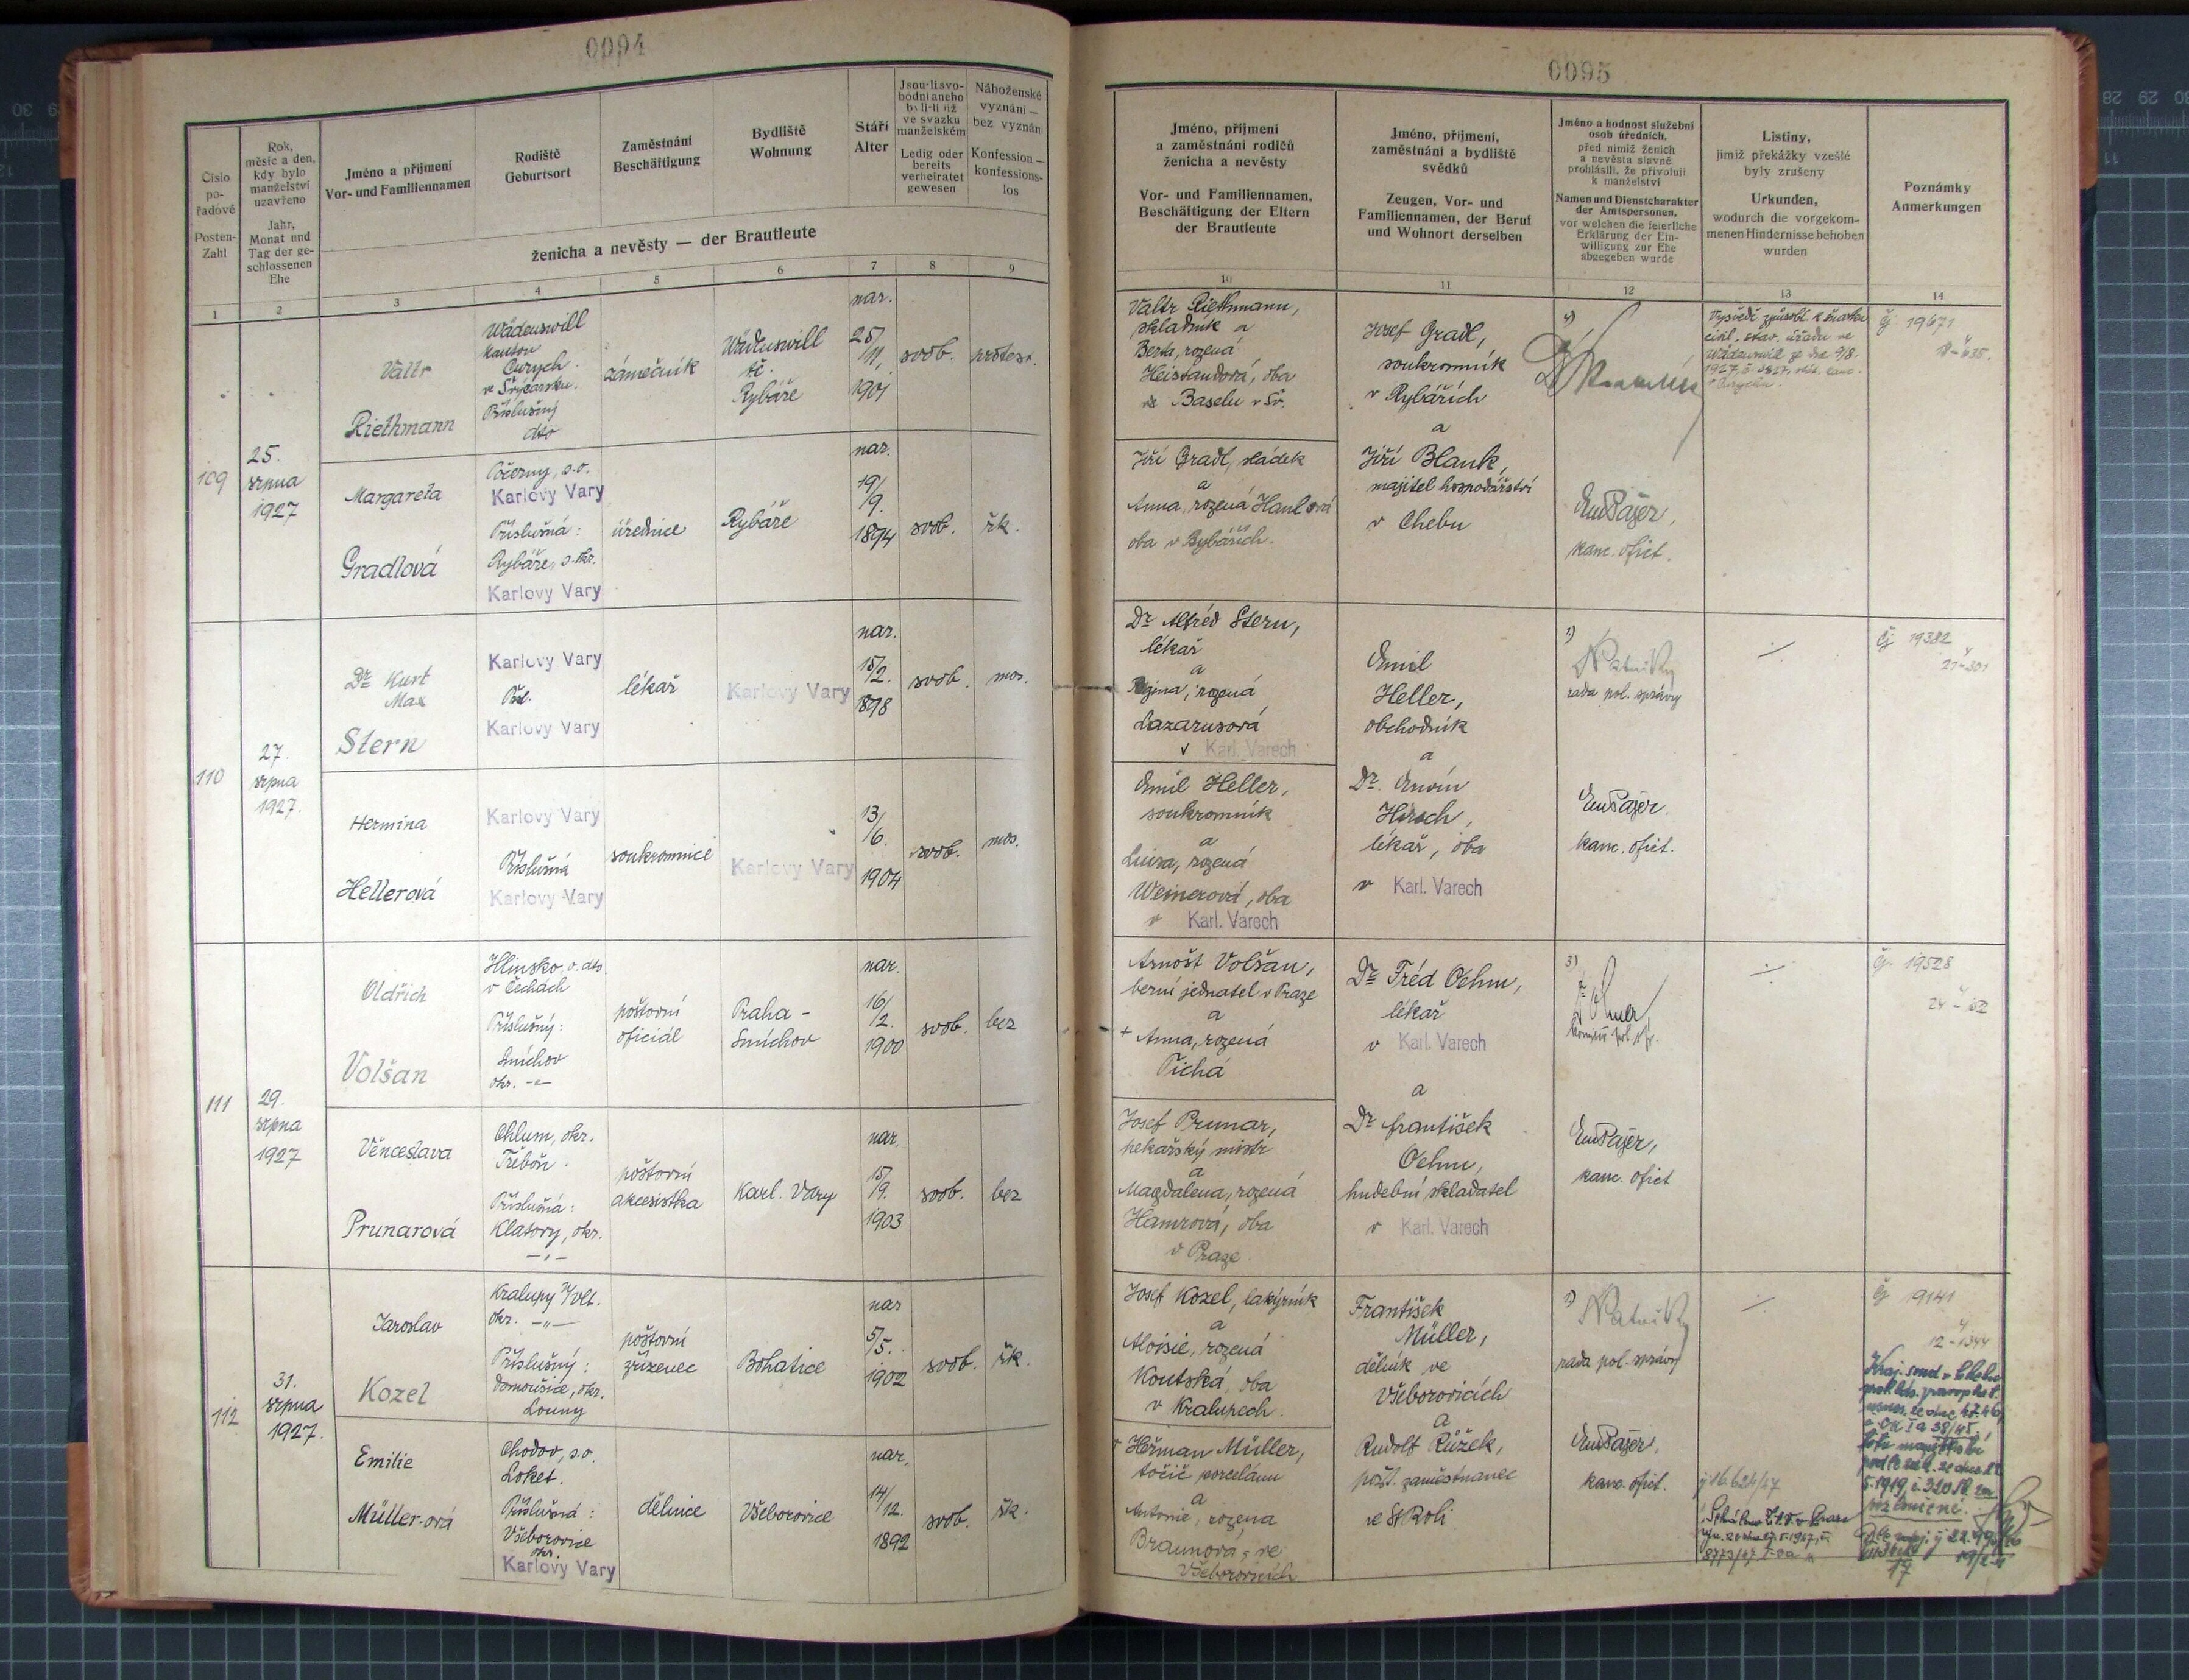 0094
Číslo pořadové
Posten-Zahl
Rok, měsíc a den, kdy bylo manželství uzavřeno
Jahr, Monat und Tag der geschlossenen Ehe
Jméno a příjmení
Vor- und Familiennamen
Rodiště
Geburtsort
Zaměstnání
Beschäftigung
Bydliště
Wohnung
Stáří
Alter
Jsou-li svobodni anebo byli-li již ve svazku manželském
Ledig oder bereits verheiratet gewesen
Náboženské vyznání — bez vyznání
Konfession — konfessionslos
ženicha a nevěsty — der Brautleute
1 2 3 4 5 6 7 8 9
109
25.
srpna
1927
Valtr
Riethmann
Wädenswill
kanton
Curych
ve Švýcarsku.
Příslušný
dto
zámečník
Wädenswill
tč.
Rybáře
nar.
25/
11.
1901
svob.
protest.
Margareta
Gradlová
Počerny, s.o.
Karlovy Vary
Příslušná:
Rybáře, s.okr.
Karlovy Vary
úřednice
Rybáře
nar.
19/
9.
1894
svob.
řk.
110
27.
srpna
1927.
Dr Kurt
Max
Stern
Karlovy Vary
Přísl.
Karlovy Vary
lékař
Karlovy Vary
nar.
15/
2.
1898
svob.
mos.
Hermina
Hellerová
Karlovy Vary
Příslušná
Karlovy Vary
soukromnice
Karlovy Vary
13/
6.
1904
svob.
mos.
111
29.
srpna
1927
Oldřich
Volšan
Hlinsko, o. dto.
v Čechách
Příslušný:
Smíchov
okr. -"-
poštovní
oficiál
Praha -
Smíchov
nar.
16/
2.
1900
svob.
bez
Věnceslava
Prunarová
Chlum, okr.
Třeboň.
Příslušná:
Klatovy, okr.
-"-
poštovní
akcesistka
Karl. Vary
nar.
15/
9.
1903
svob.
bez
112
31.
srpna
1927.
Jaroslav
Kozel
Kralupy n/vlt.
okr. -"-
Příslušný:
Domoušice, okr.
Louny
poštovní
zřízenec
Bohatice
nar
5/
5.
1902
svob.
řk.
Emilie
Müller-ová
Chodov, s.o.
Loket.
Příslušná:
Všeborovice
okr.
Karlovy Vary
dělnice
Všeborovice
nar.
14/
12.
1892
svob.
řk.
0095
Jméno, příjmení
a zaměstnání rodičů
ženicha a nevěsty
Vor- und Familiennamen,
Beschäftigung der Eltern
der Brautleute
Jméno, příjmení,
zaměstnání a bydliště
svědků
Zeugen, Vor- und
Familiennamen, der Beruf
und Wohnort derselben
Jméno a hodnost služební
osob úředních,
před nimiž ženich
a nevěsta slavně
prohlásili, že přivolují
k manželství
Namen und Dienstcharakter
der Amtspersonen,
vor welchen die feierliche
Erklärung der Ein-
willigung zur Ehe
abgegeben wurde
Listiny,
jimiž překážky vzešlé
byly zrušeny
Urkunden,
wodurch die vorgekom-
menen Hindernisse behoben
wurden
Poznámky
Anmerkungen
10 11 12 13 14
Valtr Riethmann,
skladník a
Berta, rozená
Heistandová, oba
v Baselu v Šv.
Josef Gradl,
soukromník
v Rybářích
a
Jiří Blank,
majitel hospodářství
v Chebu
čj 19671
Jiří Gradl, sládek
a
Anna, rozená Hanlová
oba v Rybářích.
Em Pajer,
kanc. ofict.
Dr Alfréd Stern,
lékař
a
Regina, rozená
Lazarusová
v Karl. Varech
Emil
Heller,
obchodník
a
Dr. Erwin
Hirsch,
lékař, oba
v Karl. Varech
rada pol. správy
čj 19382
Emil Heller,
soukromník
a
Luisa, rozená
Weinerová, oba
v Karl. Varech
Em Pajer
kanc. ofict.
Arnošt Volšan,
berní jednatel v Praze
a
+ Anna, rozená
Tichá
Dr Fréd Oehm,
lékař
v Karl. Varech
a
Dr František
Oehm,
hudební skladatel
v Karl. Varech
3)
čj 19528
Josef Prunar,
pekařský mistr
a
Magdalena, rozená
Hamrová, oba
v Praze
Em Pajer,
kanc. ofict
Josef Kozel, lakýrník
a
Aloisie, rozená
Koutská, oba
v Kralupech.
František
Müller,
dělník ve
Všeborovicích
a
Rudolf Růžek,
pošt. zaměstnanec
ve St Roli
rada pol. správy
čj 19141
12-1344
Kraj. soud v Chebu
+ Heřman Müller,
točič porcelánu
a
Antonie, rozená
Braunová, ve
Všeborovicích
Em Pajer,
kanc. ofict.